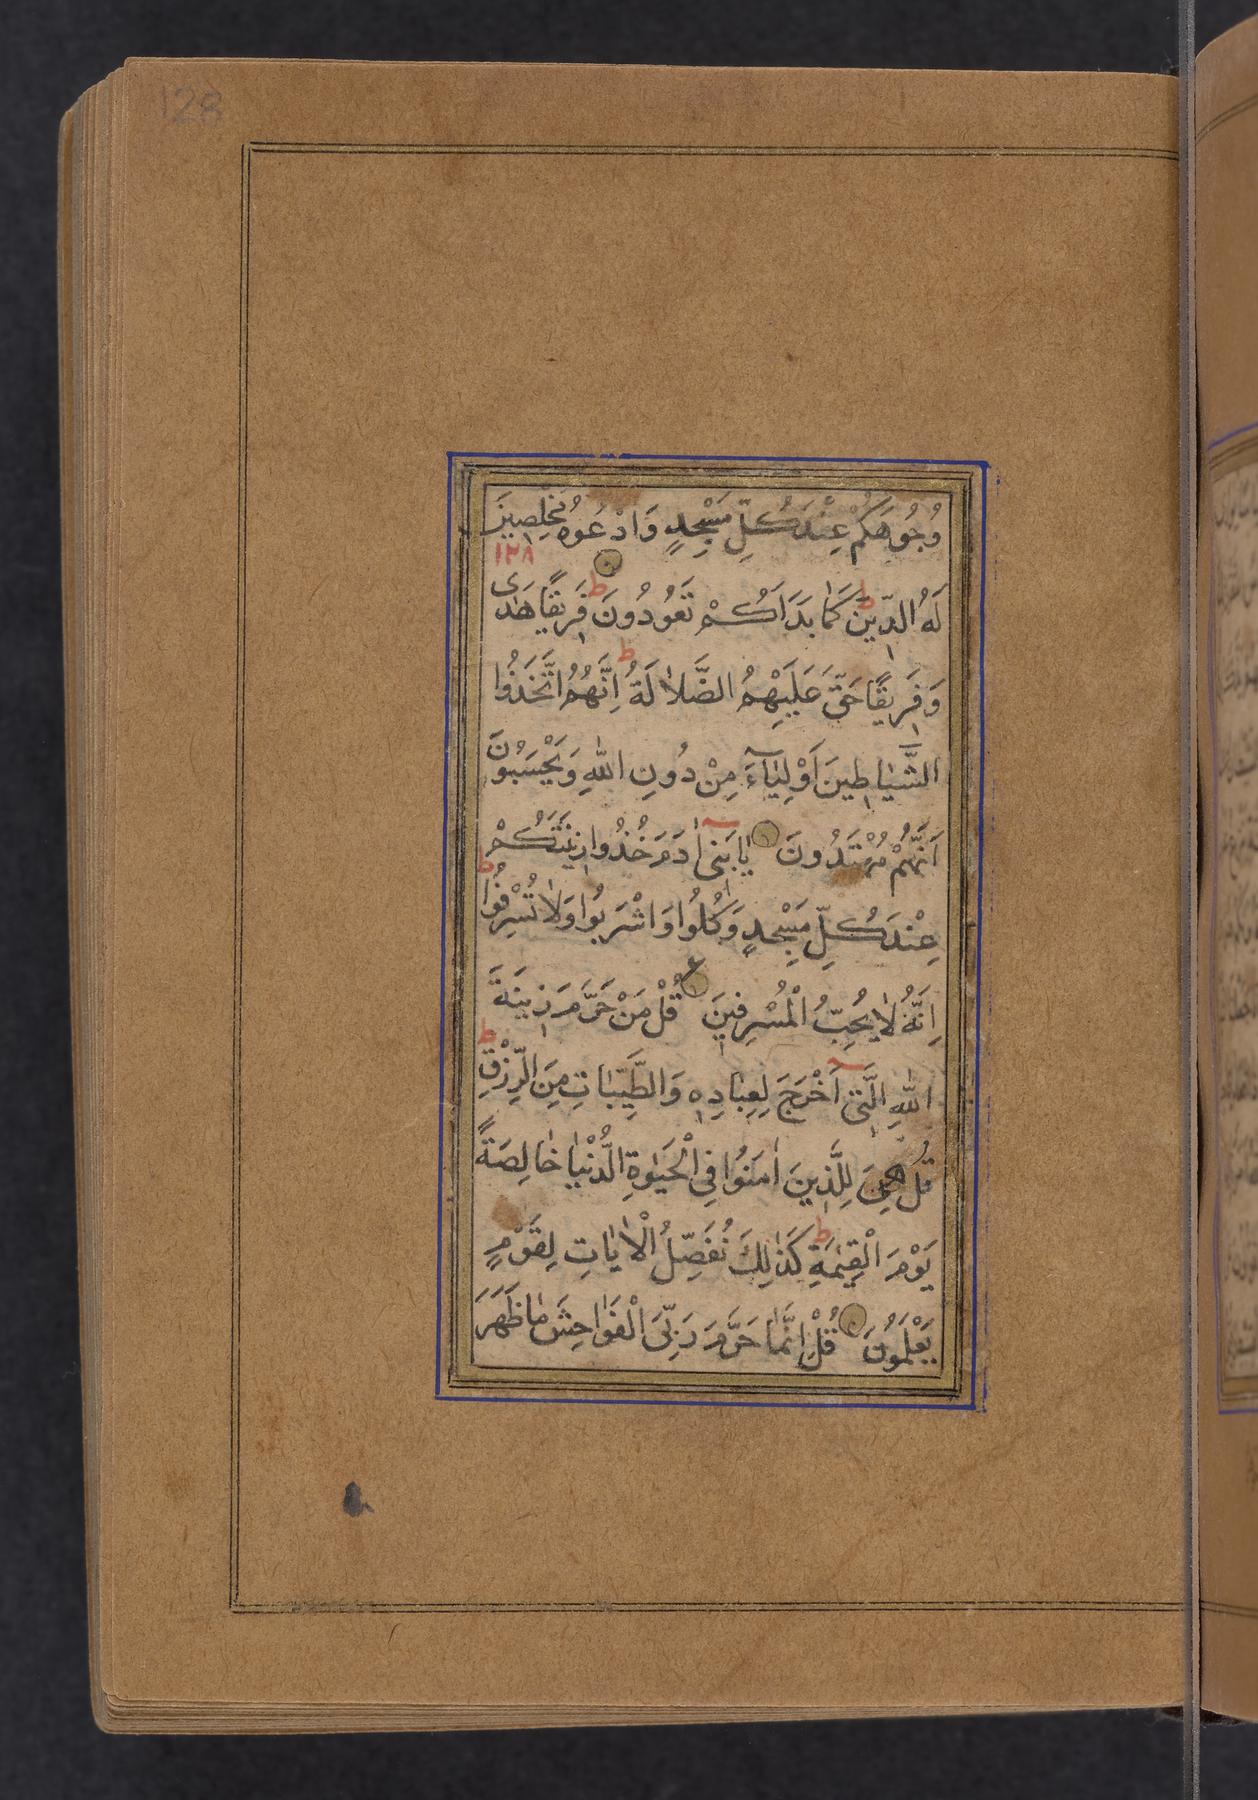 128
وُجُوهَكُمْ عِنْدَ كُلِّ مَسْجِدٍ وَادْعُوهُ مُخْلِصِينَ
١٢٨
لَهُ الدِّينَ ط كَمَا بَدَاَكُمْ تَعُودُونَ ط فَرِيقًا هَدٰى
وَفَرِيقًا حَقَّ عَلَيْهِمُ الضَّلاٰلَةُ ط اِنَّهُمُ اتَّخَذُوا
الشَّيَاطِينَ اَوْلِيَآءَ مِنْ دُونِ اللّٰهِ وَيَحْسَبُونَ
اَنَّهُمْ مُهْتَدُونَ يٰا بَنِىٓ اٰدَمَ خُذُوا زِينَتَكُمْ
عِنْدَ كُلِّ مَسْجِدٍ وَكُلُوا وَاشْرَبُوا وَلاٰ تُسْرِفُوا ط
اِنَّهُ لاٰ يُحِبُّ الْمُسْرِفِينَ ع قُلْ مَنْ حَرَّمَ زِينَةَ
اللّٰهِ الَّتِىٓ اَخْرَجَ لِعِبَادِهِ وَالطَّيِّبَاتِ مِنَ الرِّزْقِ ط
قُلْ هِىَ لِلَّذِينَ اٰمَنُوا فِى الْحَيٰوةِ الدُّنْيٰا خٰالِصَةً
يَوْمَ الْقِيٰمَةِ ط كَذٰلِكَ نُفَصِّلُ الْاٰيٰاتِ لِقَوْمٍ
يَعْلَمُونَ قُلْ اِنَّمٰا حَرَّمَ رَبِّىَ الْفَوٰاحِشَ مٰا ظَهَرَ